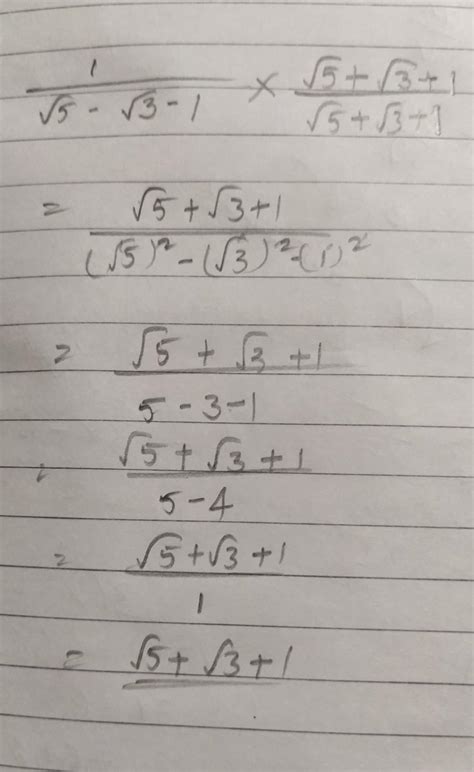 1/(√5 - √3 - 1) × (√5 + √3 + 1)/(√5 + √3 + 1)
= (√5 + √3 + 1)/((√5)² - (√3)² - (1)²)
= (√5 + √3 + 1)/(5 - 3 - 1)
, (√5 + √3 + 1)/(5 - 4)
= (√5 + √3 + 1)/1
= √5 + √3 + 1